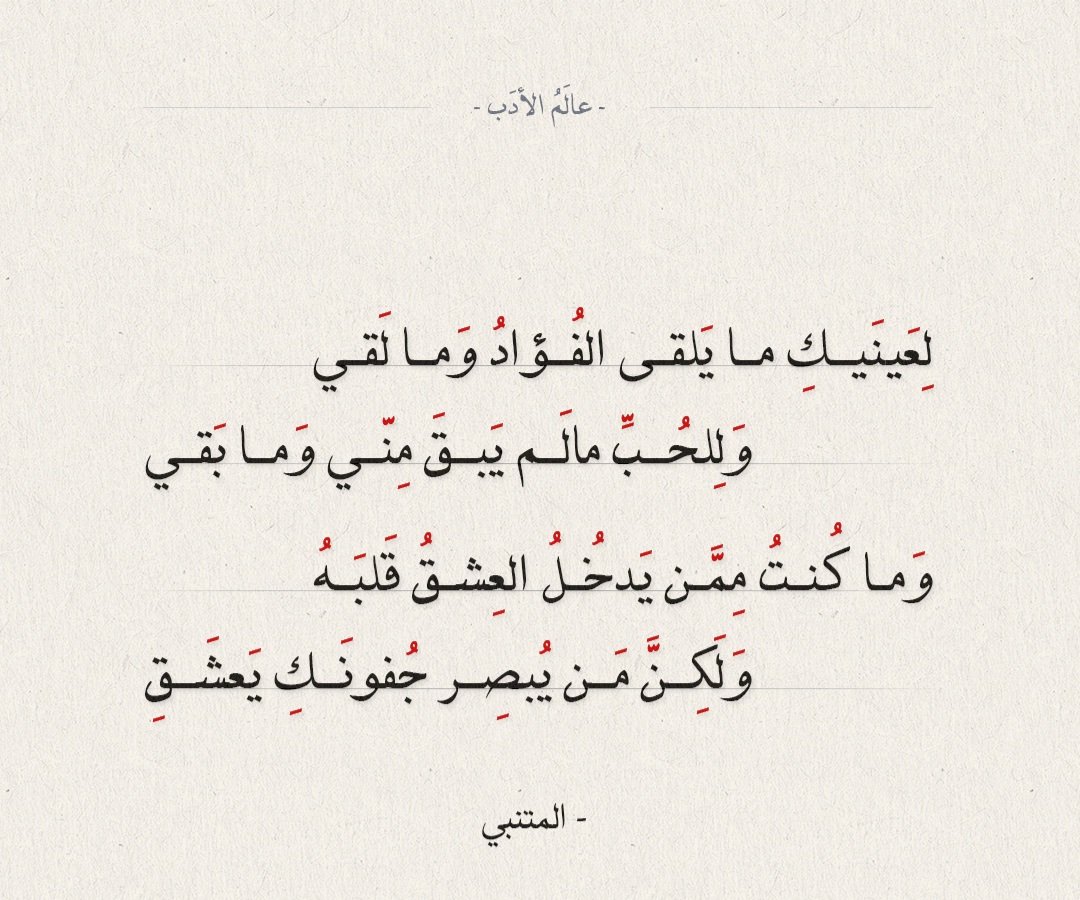 - عالَمُ الأدَب -
لِعَينَيـكِ مـا يَلقـى الفُـؤادُ وَمـا لَقـي
وَلِلحُـبِّ مالَـم يَبـقَ مِنّـي وَمـا بَقـي
وَمـا كُنـتُ مِمَّـن يَدخُـلُ العِشـقُ قَلبَـهُ
وَلَكِـنَّ مَـن يُبصِـر جُفونَـكِ يَعشَـقِ
- المتنبي